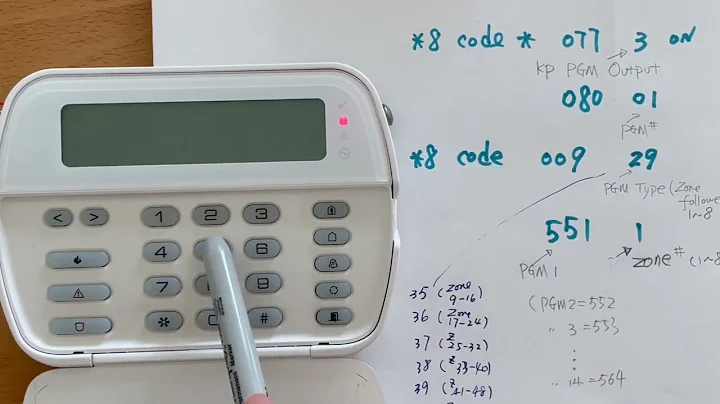 *8 code * 077 3 ON
KP PGM Output
080 01
PGM#
*8 code 009 29
PGM Type (Zone
follow
1~8
551 1
PGM 1
Zone# (1~8
35 (Zone
9-16)
36 (Zone
17-24)
37 (Z
25-32)
38 (Z
33-40)
39 (Z
41-48)
(PGM2 = 552
" 3 = 553
:
" 14 = 564
< > 1 2 3
4 6
7 9
* #